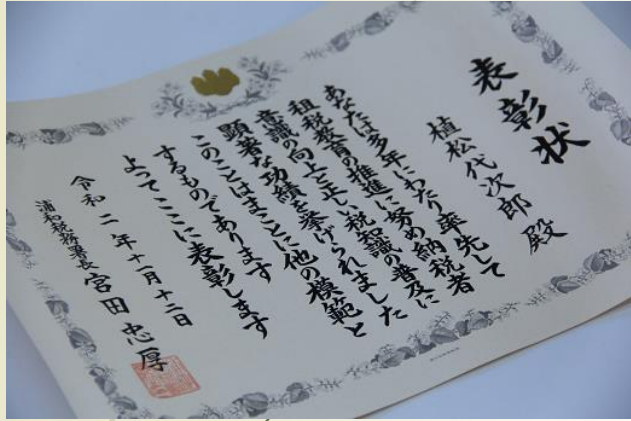 表彰状
植松代次郎殿
あなたは多年にわたり率先して
租税教育の推進に努め納税者
意識の向上と正しい税知識の普及に
顕著な功績を挙げられました
このことはまことに他の模範と
するものであります
よってここに表彰します
令和二年十一月十二日
浦和税務署長 宮田忠厚